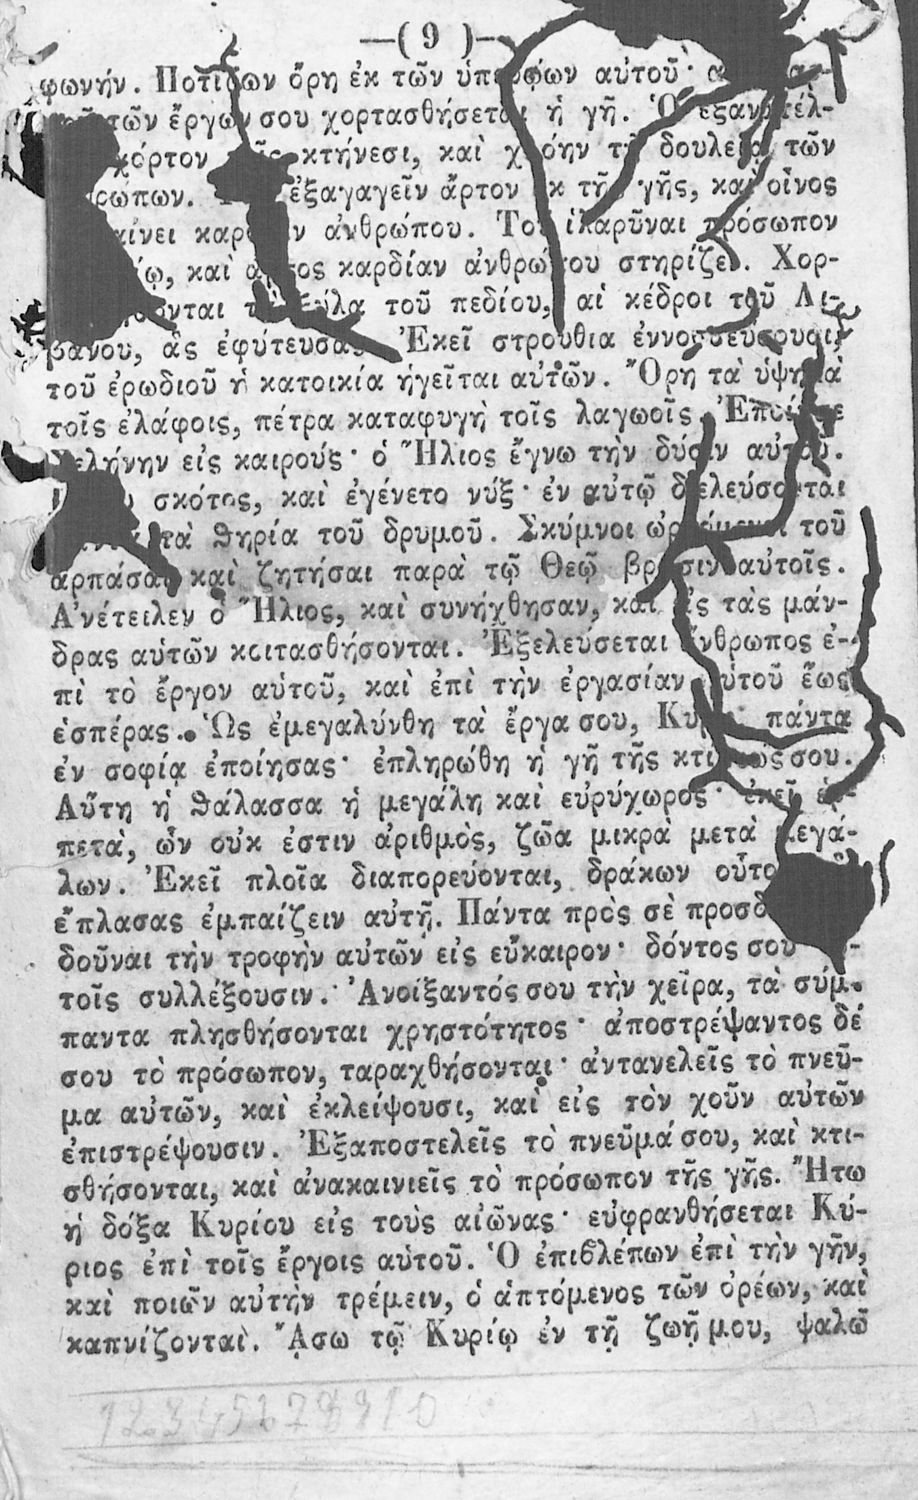 —( 9 )—
φωνήν. Ποτίζων ὄρη ἐκ τῶν ὑπερῴων αὐτοῦ·
τῶν ἔργων σου χορτασθήσεται ἡ γῆ. Ὁ ἐξανατέλ-
χόρτον κτήνεσι, καὶ χλόην τῇ δουλείᾳ τῶν
ἐξαγαγεῖν ἄρτον ἐκ τῆς γῆς, καὶ οἶνος
καρδίαν ἀνθρώπου. Τοῦ ἱλαρῦναι πρόσωπον
καὶ ἄρτος καρδίαν ἀνθρώπου στηρίζει. Χορ-
τὰ ξύλα τοῦ πεδίου, αἱ κέδροι τοῦ Λι-
βάνου, ἃς ἐφύτευσας. Ἐκεῖ στρουθία ἐννοσσεύσουσι,
τοῦ ἐρωδιοῦ ἡ κατοικία ἡγεῖται αὐτῶν. Ὄρη τὰ ὑψηλὰ
τοῖς ἐλάφοις, πέτρα καταφυγὴ τοῖς λαγωοῖς. Ἐποίησε
Σελήνην εἰς καιρούς· ὁ Ἥλιος ἔγνω τὴν δύσιν αὐτοῦ.
σκότος, καὶ ἐγένετο νύξ· ἐν αὐτῷ διελεύσονται
πάντα τὰ θηρία τοῦ δρυμοῦ. Σκύμνοι ὠρυόμενοι τοῦ
ἁρπάσαι καὶ ζητήσαι παρὰ τῷ Θεῷ βρῶσιν αὐτοῖς.
Ἀνέτειλεν ὁ Ἥλιος, καὶ συνήχθησαν, καὶ εἰς τὰς μάν-
δρας αὑτῶν κοιτασθήσονται. Ἐξελεύσεται ἄνθρωπος ἐ-
πὶ τὸ ἔργον αὑτοῦ, καὶ ἐπὶ τὴν ἐργασίαν αὑτοῦ ἕως
ἑσπέρας. Ὡς ἐμεγαλύνθη τὰ ἔργα σου, Κύριε· πάντα
ἐν σοφίᾳ ἐποίησας· ἐπληρώθη ἡ γῆ τῆς κτίσεώς σου.
Αὕτη ἡ θάλασσα ἡ μεγάλη καὶ εὐρύχωρος· ἐκεῖ ἑρ-
πετὰ, ὧν οὐκ ἐστιν ἀριθμὸς, ζῶα μικρὰ μετὰ μεγά-
λων. Ἐκεῖ πλοῖα διαπορεύονται, δράκων οὗτος
ἔπλασας ἐμπαίζειν αὐτῇ. Πάντα πρὸς σὲ προσδ
δοῦναι τὴν τροφὴν αὐτῶν εἰς εὔκαιρον· δόντος σου
τοῖς συλλέξουσιν. Ἀνοίξαντός σου τὴν χεῖρα, τὰ σύμ-
παντα πλησθήσονται χρηστότητος· ἀποστρέψαντος δέ
σου τὸ πρόσωπον, ταραχθήσονται· ἀντανελεῖς τὸ πνεῦ-
μα αὐτῶν, καὶ ἐκλείψουσι, καὶ εἰς τὸν χοῦν αὑτῶν
ἐπιστρέψουσιν. Ἐξαποστελεῖς τὸ πνεῦμά σου, καὶ κτι-
σθήσονται, καὶ ἀνακαινιεῖς τὸ πρόσωπον τῆς γῆς. Ἤτω
ἡ δόξα Κυρίου εἰς τοὺς αἰῶνας· εὐφρανθήσεται Κύ-
ριος ἐπὶ τοῖς ἔργοις αὑτοῦ. Ὁ ἐπιβλέπων ἐπὶ τὴν γῆν,
καὶ ποιῶν αὐτὴν τρέμειν, ὁ ἁπτόμενος τῶν ὀρέων, καὶ
καπνίζονται. ᾌσω τῷ Κυρίῳ ἐν τῇ ζωῇ μου, ψαλῶ
12345678910